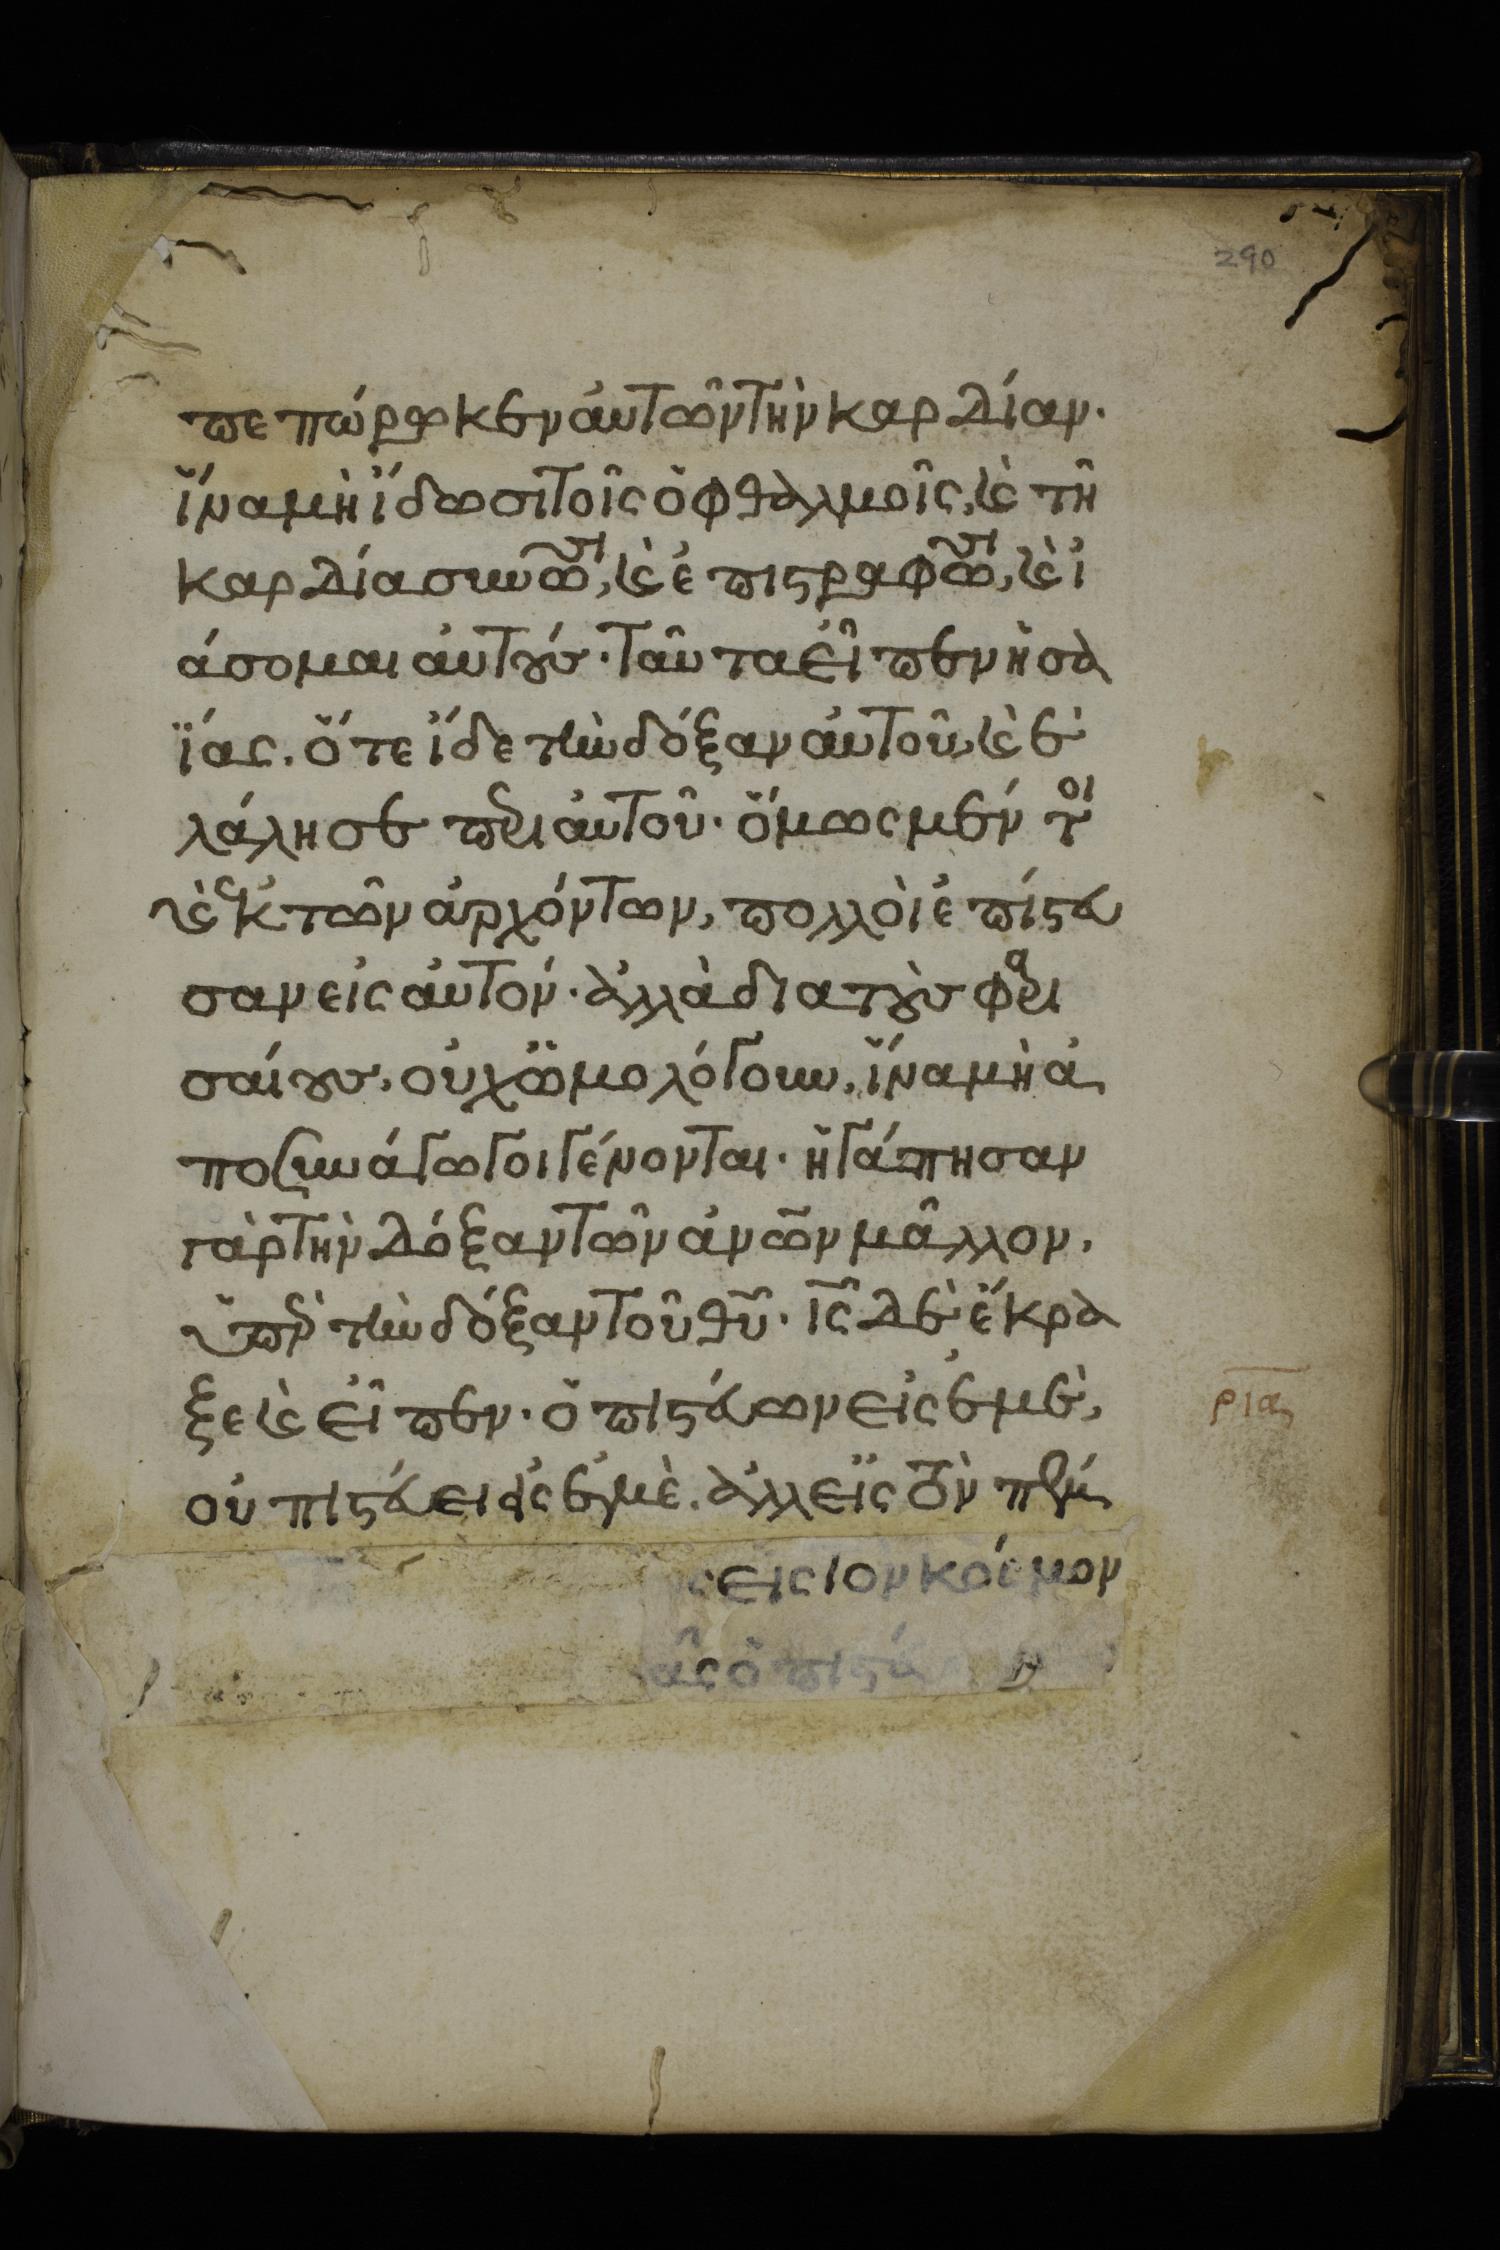 290
πεπώρωκεν αὐτῶν τὴν καρδίαν·
ἵνα μὴ ἴδωσι τοῖς ὀφθαλμοῖς, κ(αὶ) τῆ
καρδία συνῶσι, κ(αὶ) ἐπιστραφῶσι, κ(αὶ) ἰ
άσομαι αὐτούς· ταῦτα εἶπεν ἡσα
ΐας. ὅτε ἴδε τὴν δόξαν αὐτοῦ, κ(αὶ) ἐ
λάλησε περι αὐτοῦ· ὅμως μέν τοι
κ(αὶ) ἐκ τῶν ἀρχόντων, πολλοὶ ἐπίστευ
σαν εἰς αὐτόν· ἀλλὰ δια τοὺς φαρι
σαίους, οὐχ ὡμολόγουν, ἵνα μὴ ἀ
ποσυνάγωγοι γένονται· ἠγάπησαν
γὰρ τὴν δόξαν τῶν ἀνῶν μᾶλλον,
ὕπερ τὴν δόξαν τοῦ θῦ· ις δὲ ἔκρα
ξε κ(αὶ) εἶπεν· ὁ πιστεύων εἰς ἐμὲ,
οὐ πιστεύει εἰς ἐμὲ. ἀλλ εἰς τὸν πέμ
ρια
ς εις τον κόσμον
ᾶς ὁ πιστεύ